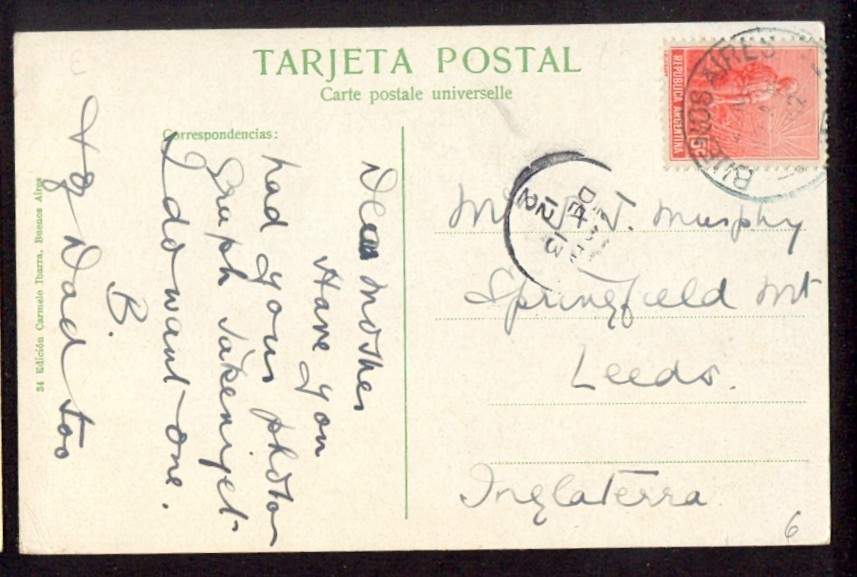 TARJETA POSTAL
Carte postale universelle
Correspondencias:
Dear Mother
Have you
had your photo
graph taken yet
I do want one.
B.
& of Dad too
34 Edición Carmelo Ibarra, Buenos Aires
REPUBLICA ARGENTINA
5c
BUENOS AIRES
Murphy
Springfield Mt
Leeds.
Inglaterra
6